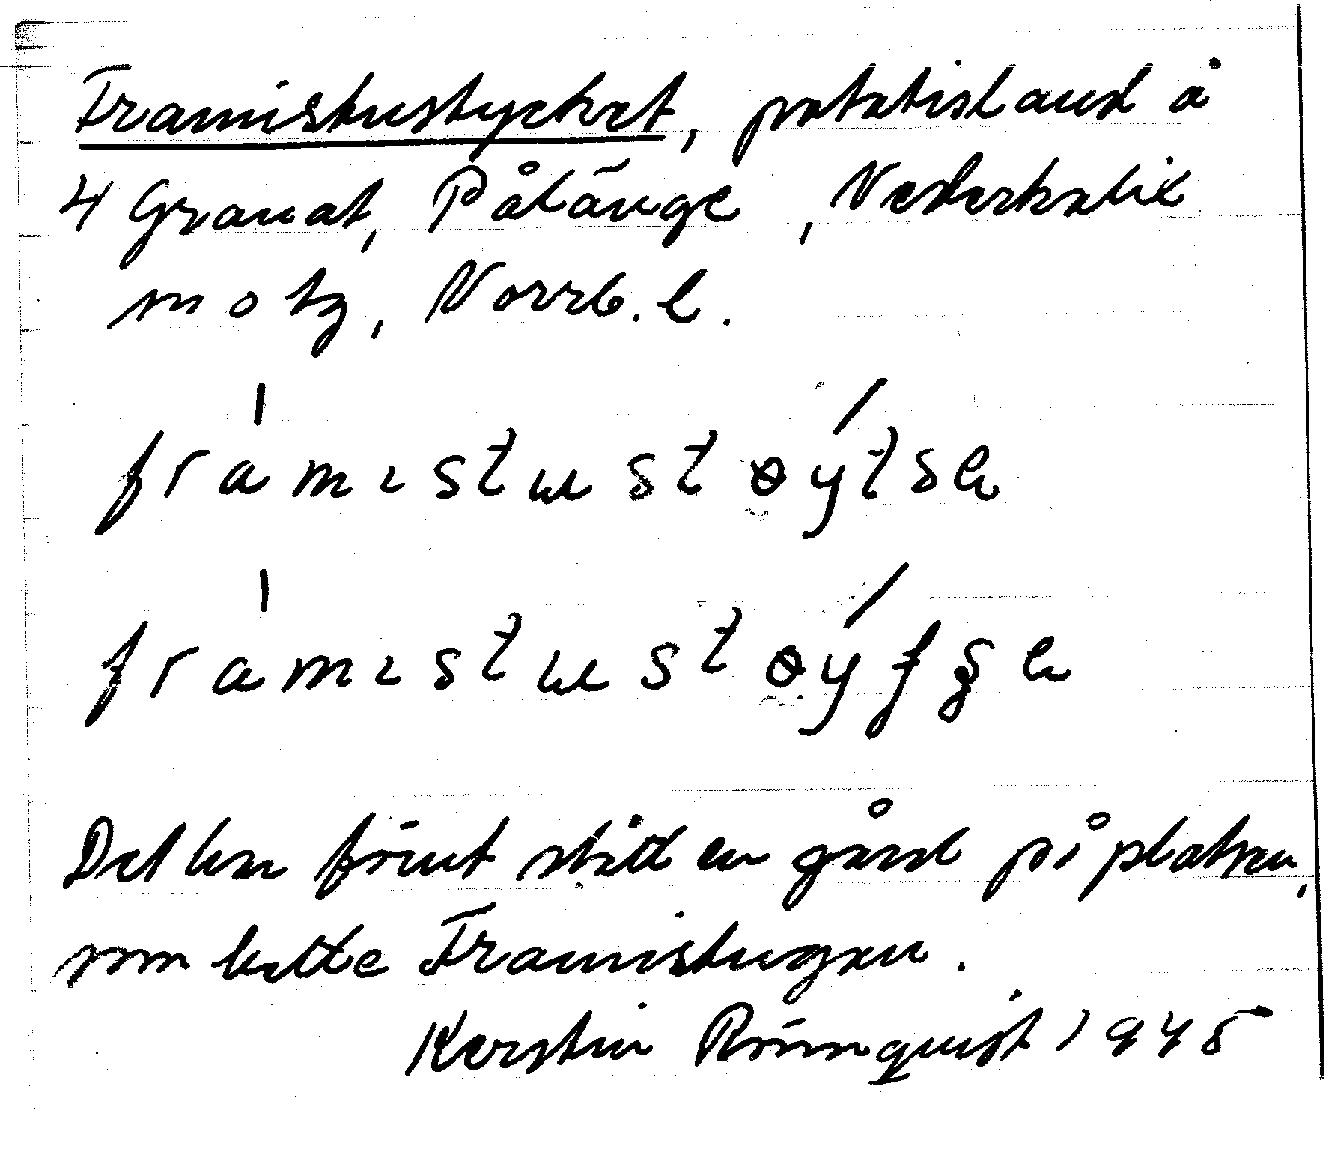 Framistustycket, potatisland å
4 Granat, Pålänge, Nederkalix
sn o tg, Norrb. l.
frámıstust øýtsa
frámıstust øýfşa
Det har förut stått en gård på platsen,
som hette Framistugan.
Kerstin Rönnquist 1945